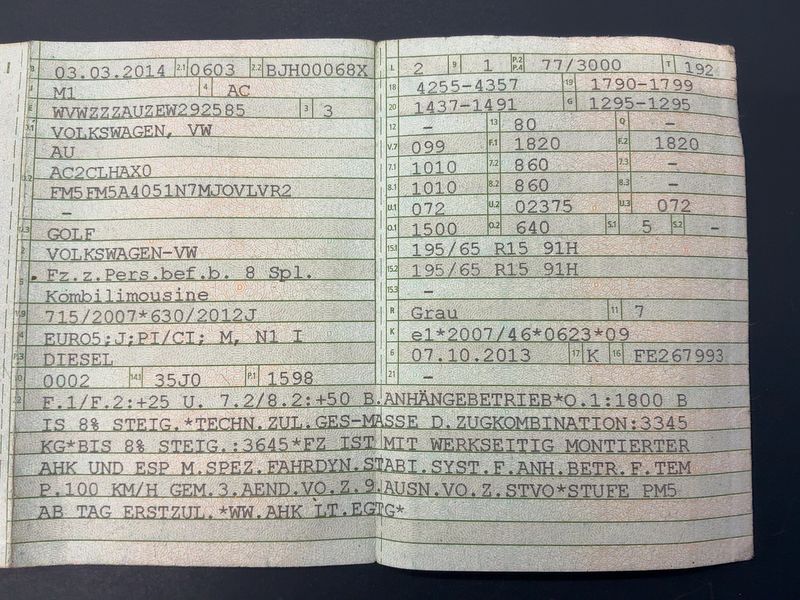 B 03.03.2014 2.1 0603 2.2 BJH00068X
J M1 4 AC
E WVWZZZAUZEW292585 3 3
D.1 VOLKSWAGEN, VW
AU
D.2 AC2CLHAX0
FM5FM5A4051N7MJOVLVR2
–
D.3 GOLF
2 VOLKSWAGEN-VW
5 Fz.z.Pers.bef.b. 8 Spl.
Kombilimousine
V.9 715/2007*630/2012J
14 EURO5;J;PI/CI; M, N1 I
P.3 DIESEL
10 0002 14.1 35J0 P.1 1598
L 2 9 1 P.2 P.4 77/3000 T 192
18 4255-4357 19 1790-1799
20 1437-1491 G 1295-1295
12 – 13 80 Q –
V.7 099 F.1 1820 F.2 1820
7.1 1010 7.2 860 7.3 –
8.1 1010 8.2 860 8.3 –
U.1 072 U.2 02375 U.3 072
O.1 1500 O.2 640 S.1 5 S.2 –
15.1 195/65 R15 91H
15.2 195/65 R15 91H
15.3 –
R Grau 11 7
K e1*2007/46*0623*09
6 07.10.2013 17 K 16 FE267993
21 –
22 F.1/F.2:+25 U. 7.2/8.2:+50 B.ANHÄNGEBETRIEB*O.1:1800 B
IS 8% STEIG.*TECHN.ZUL.GES-MASSE D.ZUGKOMBINATION:3345
KG*BIS 8% STEIG.:3645*FZ IST MIT WERKSEITIG MONTIERTER
AHK UND ESP M.SPEZ.FAHRDYN.STABI.SYST.F.ANH.BETR.F.TEM
P.100 KM/H GEM.3.AEND.VO.Z.9.AUSN.VO.Z.STVO*STUFE PM5
AB TAG ERSTZUL.*WW.AHK LT.EGTG*